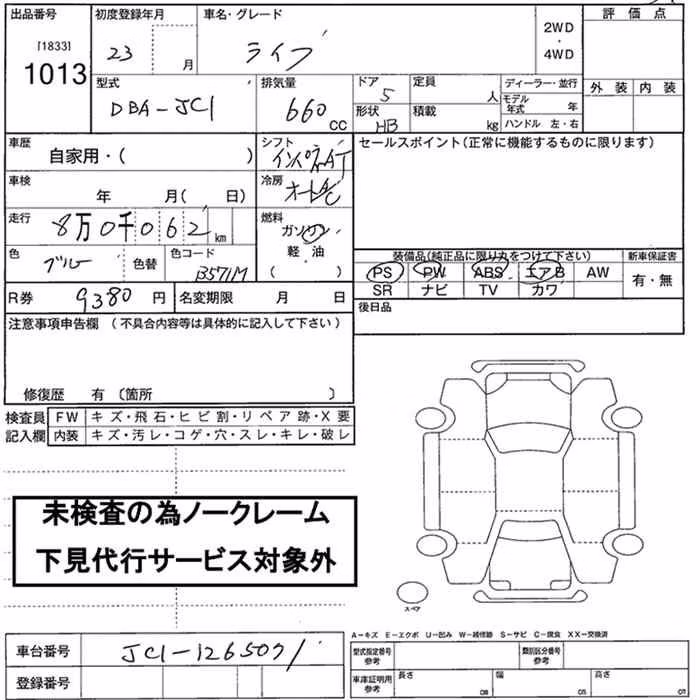 出品番号 初度登録年月 車名・グレード 評価点
[1833] 1013 23 月 ライフ 2WD・4WD
外装 内装
型式 排気量 ドア 定員 ディーラー・並行
DBA-JC1 660 CC 5 人 モデル年式 年
形状 積載 HB kg ハンドル 左・右
車歴 シフト セールスポイント(正常に機能するものに限ります)
自家用・( ) インパネAT
車検 冷房
年 月( 日) オートA/C
走行 燃料
8万0千062 km ガソリン
軽油
色 色替 色コード ( )
ブルー B571M
装備品(純正品に限り丸をつけて下さい) 新車保証書
PS PW ABS エアB AW 有・無
SR ナビ TV カワ
R券 9380 円 名変期限 月 日
後日品
注意事項申告欄 (不具合内容等は具体的に記入して下さい)
修復歴 有 〔箇所 〕
検査員 FW キズ・飛石・ヒビ割・リペア跡・X要
記入欄 内装 キズ・汚レ・コゲ・穴・スレ・キレ・破レ
未検査の為ノークレーム
下見代行サービス対象外
スペア
A−キズ E−エクボ U−凹み W−補修跡 S−サビ C−腐食 XX−交換済
車台番号 JC1-1265071
型式指定番号 参考 類別区分番号 参考
登録番号
車庫証明用 参考 長さ 幅 高さ